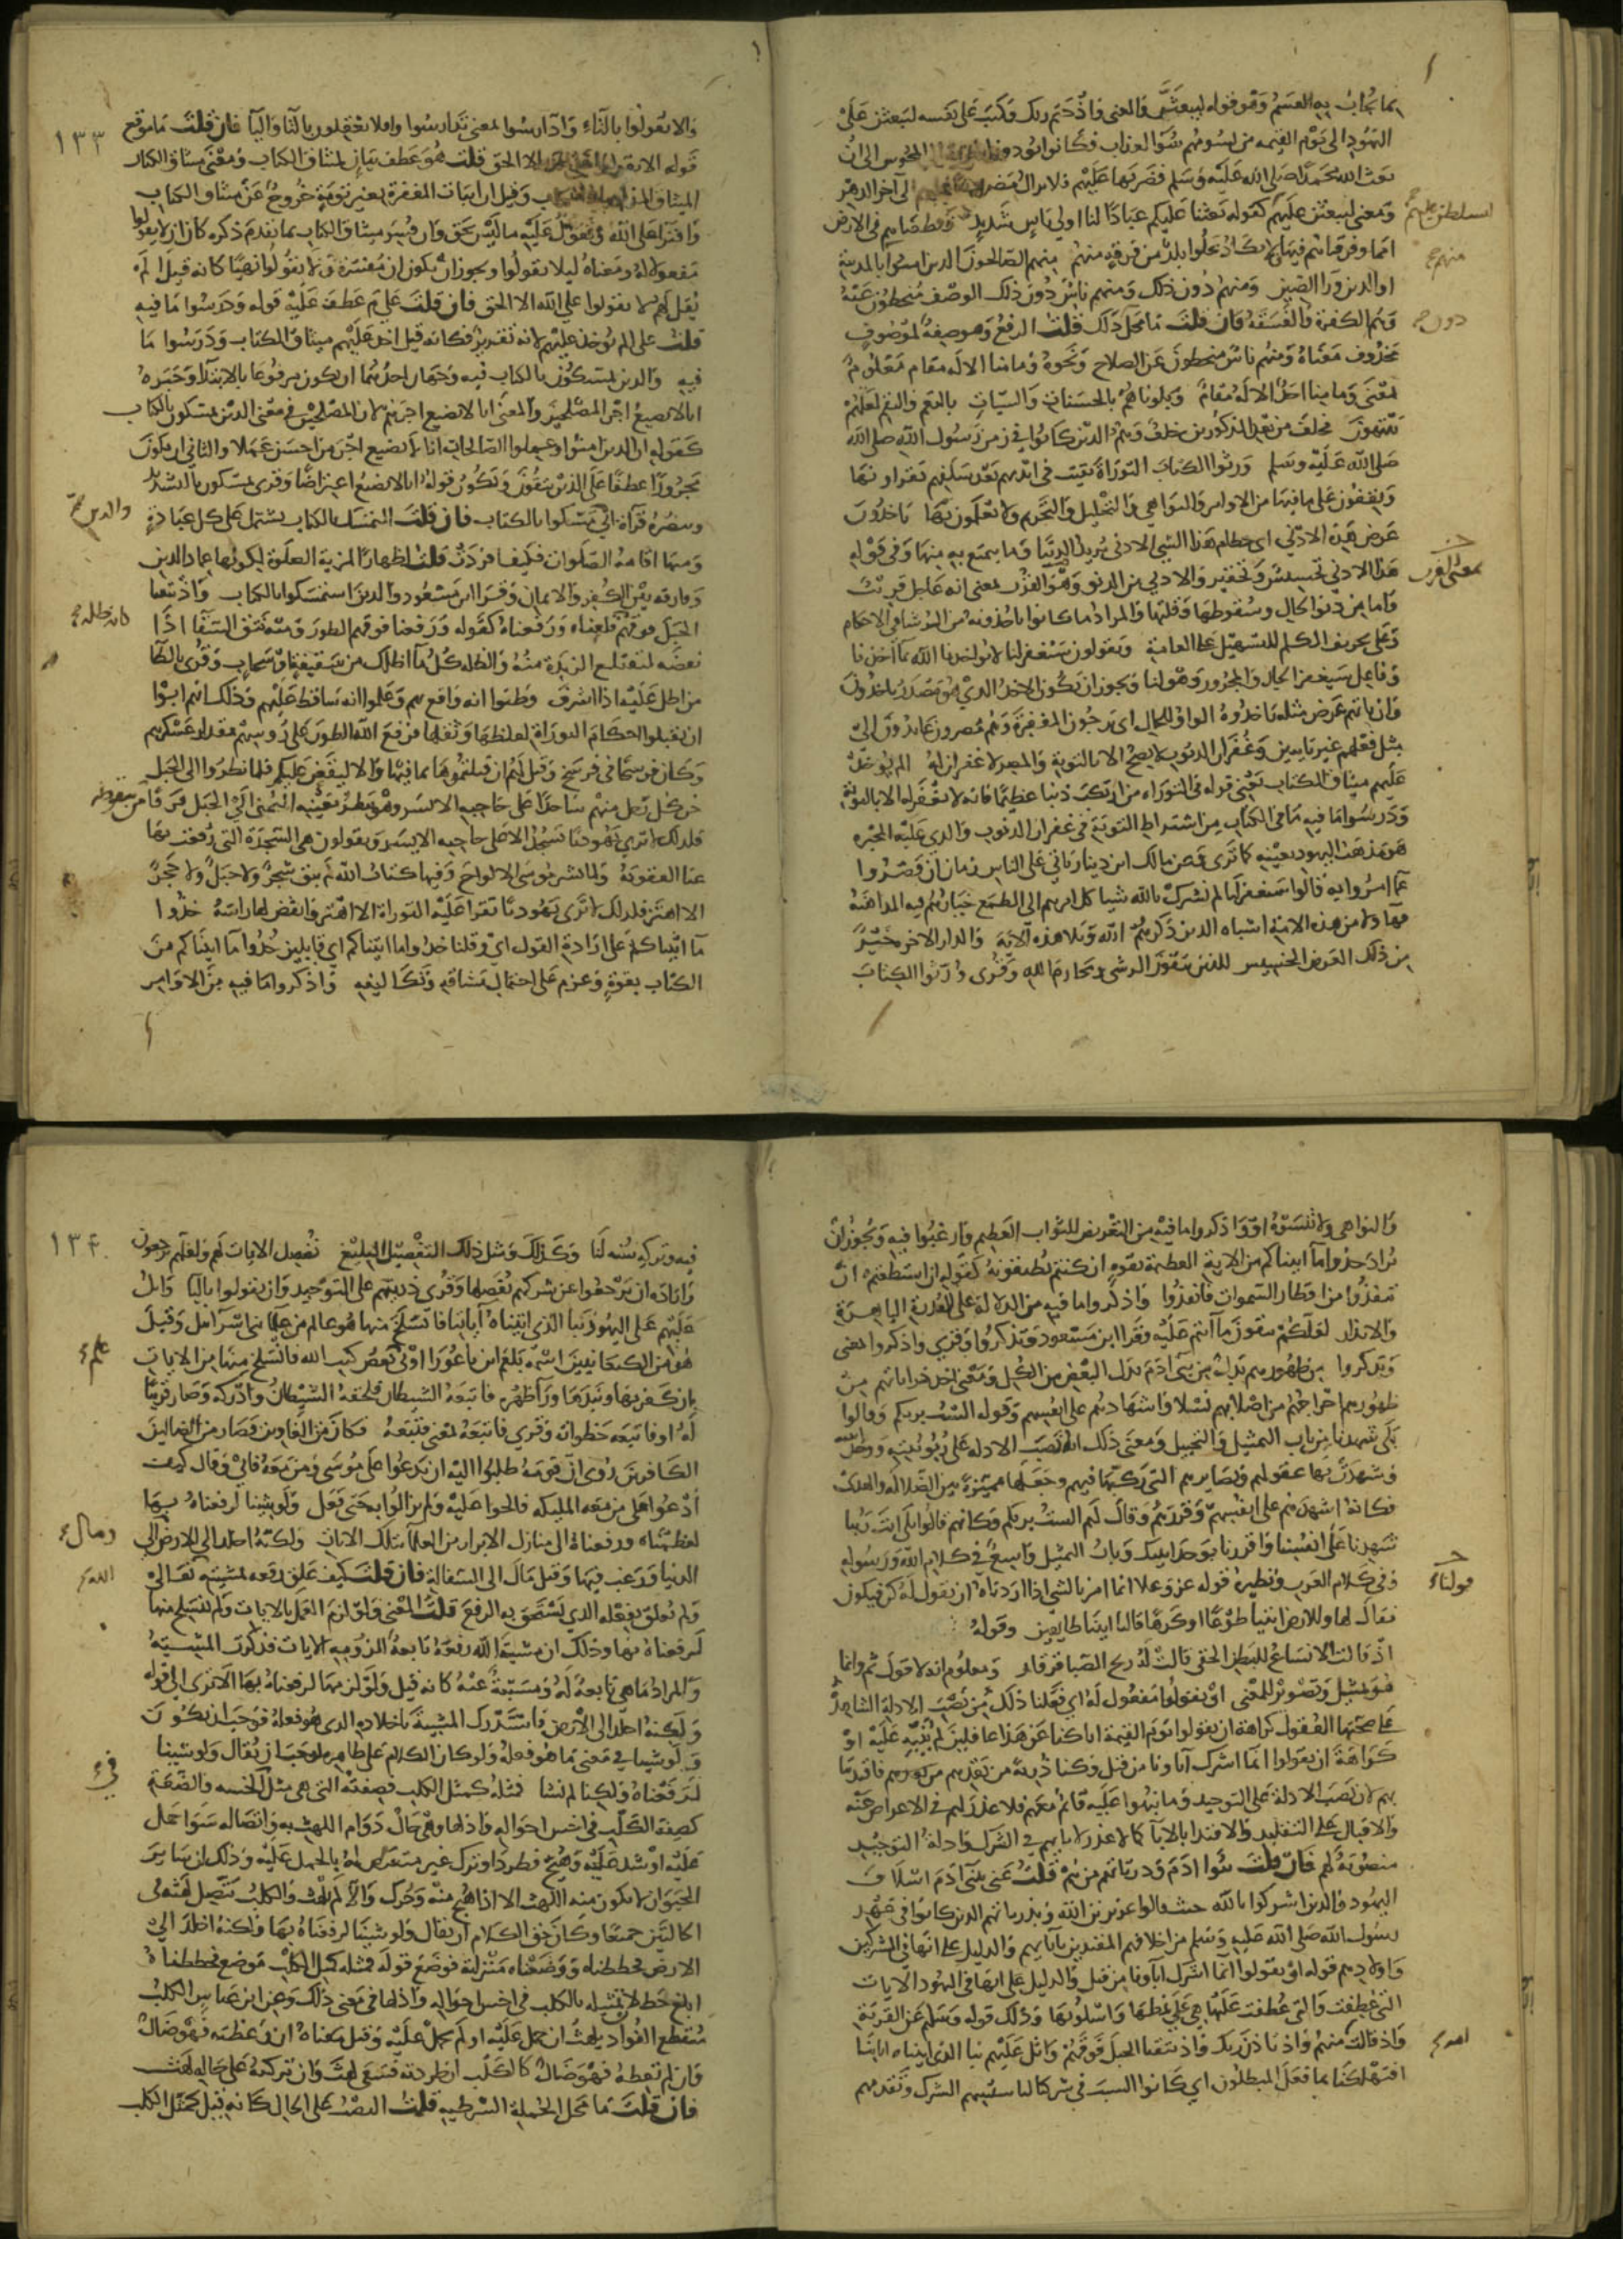 بما يجاب به القسم وهو قوله ليبعثن والمعنى واذ حتم ربك وكتب على نفسه ليبعثن على
اليهود الى يوم القيمه من يسومهم سوء العذاب فكانوا يودون المجوس الى ان
بعث الله محمدا صلى الله عليه وسلم فضربها عليهم فلا يزال مضروبه عليهم الى آخر الدهر
ومعنى ليبعثن عليهم كقوله بعثنا عليكم عبادا لنا اولي باس شديد وقطعناهم في الارض
ليسلطن عليهم
امما وفرقناهم فيها لا يكاد يخلوا بلد من فرقة منهم منهم الصالحون الدين امنوا بالمدينة
منهم
او الدين ورا الصين ومنهم دون ذلك ومنهم ناس دون ذلك الوصف منحطون عنه
وهم الكفرة والفسقة فان قلت ما محل دون ذلك قلت الرفع وهو صفة لموصوف
دون
محذوف معناه ومنهم ناس منحطون عن الصلاح ونحوه وما منا الا له مقام معلوم
بمعنى وما منا احد الا له مقام وبلوناهم بالحسنات والسيات بالنعم والنقم لعلهم
ينتهون فخلف من بعد المذكورين خلف وهم الدين كانوا في زمن رسول الله صلى الله
صلى الله عليه وسلم ورثوا الكتاب التوراة بقيت في ايديهم بعد سلفهم يقراونها
ويقفون على ما فيها من الاوامر والنواهي والتحليل والتحريم ولا يعملون بها ياخذون
عرض هذا الادنى اي حطام هذا الشي الادنى يريد الدنيا وما يتمتع به منها وفي قوله
هذا الادنى تخسيس وتحقير والادنى من الدنو وهو القرب بمعنى انه عاجل قريب
بمعنى القرب
واما من دنو الحال وسقوطها وقلتها والمراد ما كانوا ياخذونه من الرشا في الاحكام
وعلى تحريف الكلم للتسهيل على العامة ويقولون سيغفر لنا لا يواخذنا الله بما اخذنا
وفاعل سيغفر الجار والمجرور وهو لنا ويجوز ان يكون الاخذ الذي هو مصدر ياخذون
وان ياتهم عرض مثله ياخذوه الواو للحال اي يرجون المغفرة وهم مصرون عايدون الى
مثل فعلهم غير تايبين وغفران الذنوب لا يصح الا بالتوبة والمصر لا غفران له الم يوخذ
عليهم ميثاق الكتاب يعني قوله في التوراه من ارتكب ذنبا عظيما فانه لا يغفر له الا بالتوبة
ودرسوا ما فيه ما في الكتاب من اشتراط التوبة في غفران الذنوب والدي عليه المجبره
هو مذهب اليهود بعينه كما ترى وعن مالك ابن دينار ياتي على الناس زمان ان قصروا
عما امروا به قالوا سيغفر لنا لم نشرك بالله شيا كل امرهم الى الطمع خيارهم فيه المداهنة
فهاولا من هذه الامة اشباه الدين ذكرهم الله وتلا هذه الآية والدار الاخرة خير
من ذلك العرض الخسيس للذين يتقون الرشى ومحارم الله وقرى ورثوا الكتاب
١٣٣
والا تقولوا بالتاء وادارسوا بمعنى تدارسوا وافلا تعقلون بالتا واليا فان قلت ما موقع
قوله الا يقولوا على الله الا الحق قلت هو عطف بيان لميثاق الكتاب ومعنى ميثاق الكتاب
الميثاق المذكور في الكتاب وقيل ان اثبات المغفرة بغير توبة خروج عن ميثاق الكتاب
وافترا على الله وتقول عليه ما ليس بحق وان فسر ميثاق الكتاب بما تقدم ذكره كان ان لا يقولوا
مفعولا له ومعناه ليلا يقولوا ويجوز ان يكون ان مفسرة ولا يقولوا نهيا كانه قيل الم
يقل لهم لا تقولوا على الله الا الحق فان قلت علام عطف عليه قوله ودرسوا ما فيه
قلت على الم يوخذ عليهم لانه تقدير فكانه قيل اخذ عليهم ميثاق الكتاب ودرسوا ما
فيه والدين يمسكون بالكتاب فيه وجهان احدهما ان يكون مرفوعا بالابتدا وخبره
انا لا نضيع اجر المصلحين والمعنى انا لا نضيع اجرهم لان المصلحين في معنى الدين يمسكون بالكتاب
كقوله ان الدين امنوا وعملوا الصالحات انا لا نضيع اجر من احسن عملا والثاني ان يكون
مجرورا عطفا على الذين يتقون ويكون قوله انا لا نضيع اعتراضا وقرى يمسكون بالتشديد
وينصره قراة ابي مسكوا بالكتاب فان قلت التمسك بالكتاب يشتمل على كل عبادة
والدين
ومنها اقامة الصلوات فكيف افردت قلت اظهارا لمزية الصلوة لكونها عماد الدين
وفارقه بين الكفر والايمان وقرا ابن مسعود والدين استمسكوا بالكتاب واذ نتقنا
الجبل فوقهم قلعناه ورفعناه كقوله ورفعنا فوقهم الطور ومنه نتق السقا اذا
كانه ظله
نفضه لتقتلع الزبدة منه والظله كل ما اظلك من سقيفة او سحاب وقرى بالطا
من اطل عليه اذا اشرف وظنوا انه واقع بهم وعلموا انه ساقط عليهم وذلك انهم ابوا
ان يقبلوا احكام التوراة لغلظها وثقلها فرفع الله الطور على روسهم مقدار عسكرهم
وكان فرسخا في فرسخ وقيل لهم ان قبلتموها بما فيها والا ليقعن عليكم فلما نظروا الى الجبل
خر كل رجل منهم ساجدا على حاجبه الايسر وهو ينظر بعينه اليمنى الى الجبل فرقا من سقوطه
فلذلك لا ترى يهوديا يسجد الا على حاجبه الايسر ويقولون هي السجدة التي رفعت بها
عنا العقوبة ولما نشر موسى الالواح وفيها كتاب الله لم يبق شجر ولا جبل ولا حجر
الا اهتز فلذلك لا ترى يهوديا تقرا عليه التوراة الا اهتز وانغض لها راسه خذوا
ما اتيناكم على ارادة القول اي وقلنا خذوا ما اتيناكم اي قايلين خذوا ما اتيناكم من
الكتاب بقوة وعزم على احتمال مشاقه وتكاليفه واذكروا ما فيه من الاوامر
والنواهي ولا تنسوه او واذكروا ما فيه من التعريض للثواب العظيم فارغبوا فيه ويجوز ان
يراد خذوا ما اتيناكم من الاية العظيمة بقوه ان كنتم تطيقونه كقوله ان استطعتم ان
تنفذوا من اقطار السموات فانفذوا واذكروا ما فيه من الدلالة على القدرة الباهرة
والانذار لعلكم تتقون ما انتم عليه وقرا ابن مسعود وتذكروا وقرى واذكروا بمعنى
وتذكروا من ظهورهم بدل من بني ادم بدل البعض من الكل ومعنى اخذ ذرياتهم من
ظهورهم اخراجهم من اصلابهم نسلا واشهادهم على انفسهم وقوله الست بربكم وقالوا
بلى شهدنا من باب التمثيل والتخييل ومعنى ذلك انه نصب الادله على ربوبيته ووحدانيته
وشهدت بها عقولهم وبصايرهم التي ركبها فيهم وجعلها مميزة بين الضلالة والهدى
فكانه اشهدهم على انفسهم وقررهم وقال لهم الست بربكم وكانهم قالوا بلى انت ربنا
شهدنا على انفسنا واقررنا بوحدانيتك وباب التمثيل واسع في كلام الله ورسوله
وفي كلام العرب ونظيره قوله عز وعلا انما امرنا لشي اذا اردناه ان نقول له كن فيكون
قولنا
فقال لها وللارض ايتيا طوعا او كرها قالتا اتينا طايعين وقوله
اذ قالت الانساع للبطن الحقى قالت له ريح الصبا قرقار ومعلوم انه لا قول ثم وانما
هو تمثيل وتصوير للمعنى ان يقولوا مفعول له اي فعلنا ذلك من نصب الادلة الشاهدة
على صحتها العقول كراهة ان يقولوا يوم القيمة انا كنا عن هذا غافلين لم ننبه عليه او
كراهة ان يقولوا انما اشرك اباونا من قبل وكنا ذرية من بعدهم فاقتدينا
بهم لان نصب الادلة على التوحيد وما نبهوا عليه قائم معهم فلا عذر لهم في الاعراض عنه
والاقبال على التقليد والاقتدا بالابا كما لا عذر لابايهم في الشرك وادلة التوحيد
منصوبة لهم فان قلت بنوا ادم وذرياتهم من هم قلت عنى ببني ادم اسلاف
اليهود الذين اشركوا بالله حيث قالوا عزير ابن الله وبذرياتهم الدين كانوا في عهد
رسول الله صلى الله عليه وسلم من اخلافهم المقتدين بابايهم والدليل على انها في المشركين
واولادهم قوله او تقولوا انما اشرك اباونا من قبل والدليل على انها في اليهود الايات
التي عطفت عليها والتي عطفت عليها هي على نمطها واسلوبها وذلك قوله وسلهم عن القرية
واذ قالت امة منهم واذ تاذن ربك واذ نتقنا الجبل فوقهم واتل عليهم نبا الذي اتيناه اياتنا
امة
افتهلكنا بما فعل المبطلون اي كانوا السبب في شركنا لتاسيسهم الشرك وتقدمهم
١٣٤
فيه وتركه سنة لنا وكذلك ومثل ذلك التفصيل البليغ نفصل الايات لهم ولعلهم يرجعون
وارادة ان يرجعوا عن شركهم نفصلها وقرى ذريتهم على التوحيد وان يقولوا باليا واتل
عليهم على اليهود نبا الذي اتيناه اياتنا فانسلخ منها هو عالم من علما بني اسرائيل وقيل
علم
هو من الكنعانيين اسمه بلعم ابن باعورا اوتي بعض كتب الله فانسلخ منها من الايات
بان كفر بها ونبذها وراء ظهره فاتبعه الشيطان فلحقه الشيطان وادركه وصار قرينا
له او فاتبعه خطواته وقرى فاتبعه بمعنى فتبعه فكان من الغاوين فصار من الضالين
الكافرين روى ان قومه طلبوا اليه ان يدعوا على موسى ومن معه فابى وقال كيف
ادعوا على من معه المليكه فالحوا عليه ولم يزالوا به حتى فعل ولو شينا لرفعناه بها
لعظمناه ورفعناه الى منازل الابرار من العلما بتلك الايات ولكنه اخلد الى الارض الى
ومال
الدنيا ورغب فيها وقيل مال الى السفالة فان قلت كيف علق رفعه بمشيته تعالى
الله
ولم يعلق بفعله الذي يستحق به الرفع قلت المعنى ولو لزم العمل بالايات ولم ينسلخ منها
لرفعناه بها وذلك ان مشية الله رفعه تابعة للزومه الايات فذكرت المشية
والمراد ما هي تابعة له ومسببة عنه كانه قيل ولو لزمها لرفعناه بها الا ترى الى قوله
ولكنه اخلد الى الارض فاستدرك المشية باخلاده الذي هو فعله فوجب ان يكون
ولو شينا في معنى ما هو فعله ولو كان الكلام على ظاهره لوجب ان يقال ولو شينا
لرفعناه ولكنا لم نشا فمثله كمثل الكلب فصفته التي هي مثل في الخسة والضعة
في
كصفة الكلب في اخس احواله واذلها وهي حال دوام اللهث به واتصاله سوا حمل
عليه اي شد عليه وهيج فطرد او ترك غير متعرض له بالحمل عليه وذلك ان ساير
الحيوان لا يكون منه اللهث الا اذا هيج منه وحرك والا لم يلهث والكلب يتصل لهثه في
الحالتين جميعا وكان حق الكلام ان يقال ولو شينا لرفعناه بها ولكنه اخلد الى
الارض فحططناه ووضعنا منزلته فوضع قوله فمثله كمثل الكلب موضع فحططناه
ابلغ حط لان تمثيله بالكلب في اخس احواله واذلها في معنى ذلك وعن ابن عباس الكلب
منقطع الفواد يلهث ان حمل عليه او لم يحمل عليه وقيل معناه ان وعظته فهو ضال
وان لم تعظه فهو ضال كالكلب ان طردته فسعى لهث وان تركته على حاله لهث
فان قلت ما محل الجملة الشرطيه قلت النصب على الحال كانه قيل كمثل الكلب